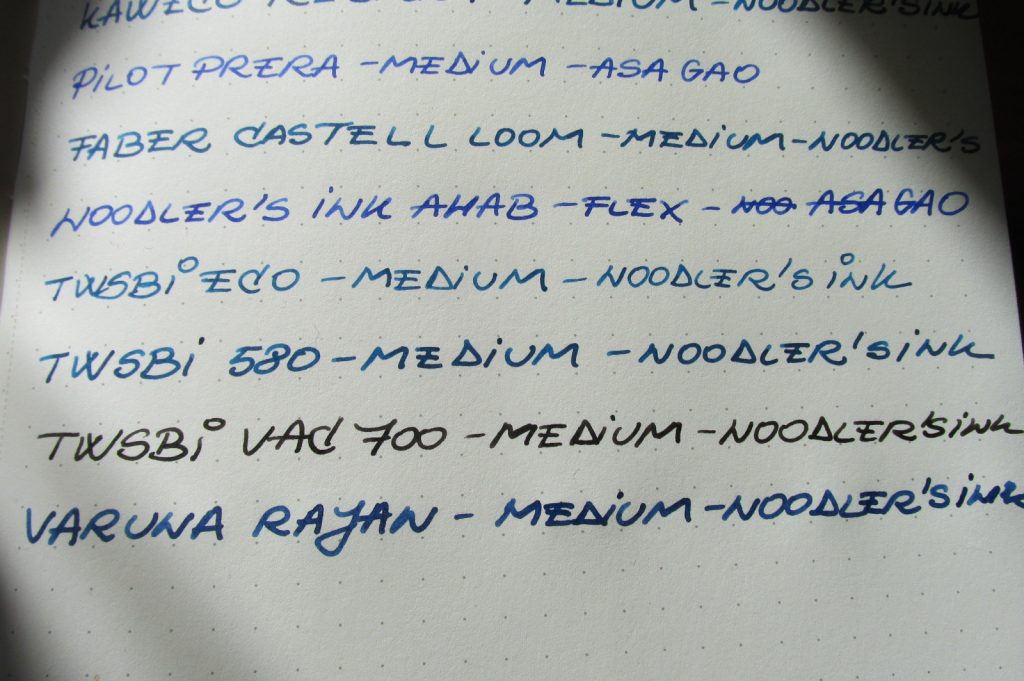 KAWECO - MEDIUM - NOODLER'S INK
PILOT PRERA - MEDIUM - ASA GAO
FABER CASTELL LOOM - MEDIUM - NOODLER'S
NOODLER'S INK AHAB - FLEX - NOO ASA GAO
TWSBI ECO - MEDIUM - NOODLER'S INK
TWSBI 580 - MEDIUM - NOODLER'S INK
TWSBI VAC 700 - MEDIUM - NOODLER'S INK
VARUNA RAJAN - MEDIUM - NOODLER'S INK